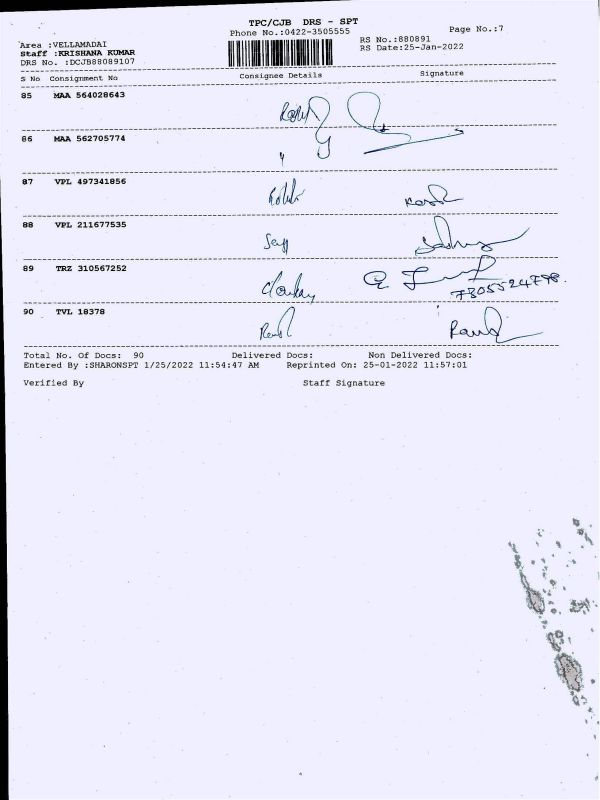 TPC/CJB DRS - SPT
Phone No.:0422-3505555
Page No.:7
Area :VELLAMADAI
Staff :KRISHANA KUMAR
DRS No. :DCJB88089107
RS No.:880891
RS Date:25-Jan-2022
S No Consignment No Consignee Details Signature
85 MAA 564028643
86 MAA 562705774
87 VPL 497341856
88 VPL 211677535
89 TRZ 310567252
7305524798.
90 TVL 18378
Total No. Of Docs: 90 Delivered Docs: Non Delivered Docs:
Entered By :SHARONSPT 1/25/2022 11:54:47 AM Reprinted On: 25-01-2022 11:57:01
Verified By Staff Signature